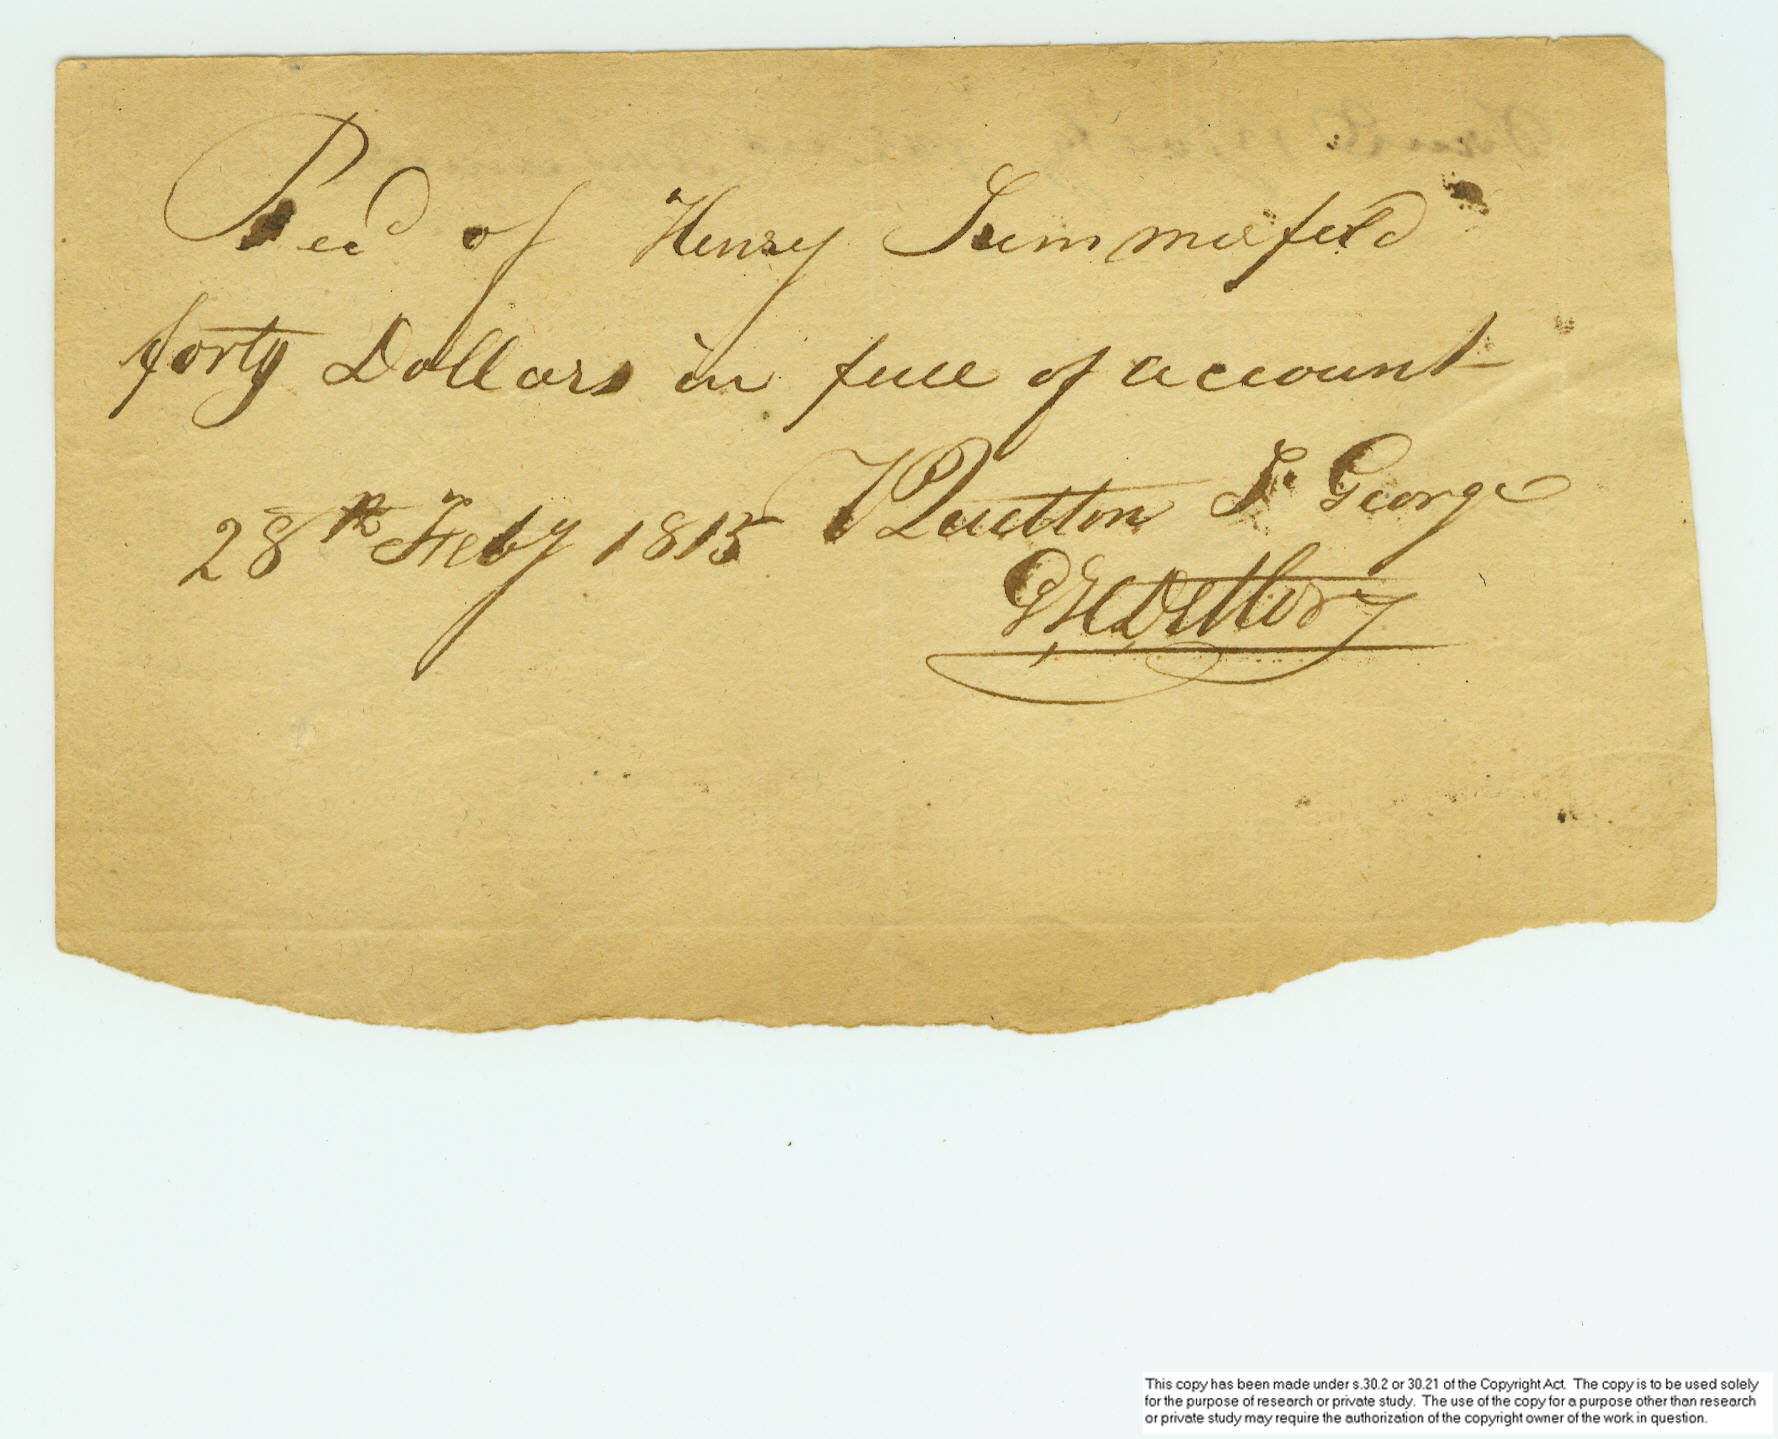 Recd of Henry Summerfeld
forty Dollars in full of account
28th Feby 1815 Quetton St George
This copy has been made under s.30.2 or 30.21 of the Copyright Act. The copy is to be used solely
for the purpose of research or private study. The use of the copy for a purpose other than research
or private study may require the authorization of the copyright owner of the work in question.